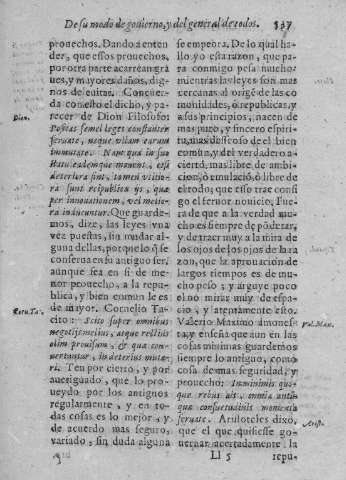 De su modo de gouierno, y del general de todos. 537
prouechos. Dando a enten
der, que essos prouechos,
por otra parte acarrean gra
ues, y mayores daños, dig-
nos de euitar. Concuer-
da con esto el dicho, y pa-
recer de Dion Filosofo:
Dion.
Positas semel leges constanter
seruate, neque ullam earum
immutate. Nam quæ in suo
statu eademque manent, etsi
deteriora sint, tamen vtilio-
ra sunt reipublicæ ijs, quæ
per innouationem, vel melio-
ra inducuntur. Que guarde-
mos, dize, las leyes vna
vez puestas, sin mudar al-
guna dellas, porque lo que se
conserua en su antiguo ser,
aunque sea en si de me-
nor prouecho, a la repu-
blica, y bien comun le es
de mayor. Cornelio Ta-
Corn. Ta.
cito: Scito super omnibus
negotijs melius, atque rectius
olim prouisum, & quæ con-
uertuntur, in deterius muta-
ri. Ten por cierto, y por
aueriguado, que lo pro-
ueydo por los antiguos
regularmente, y en to-
das cosas es lo mejor, y
de acuerdo mas seguro,
variado, sin duda alguna
se empeora. De lo qual ha-
llo yo esta razon, que pa-
ra conmigo pesa mucho
mientras las leyes son mas
cercanas al origẽ de las co
munidades, ò republicas, y
a sus principios, nacen de
mas puro, y sincero espiri-
tu, mas desseoso de el bien
comun, y del verdadero a-
cierto, mas libre de ambi-
cion, ò emulació, ò libre de
el todo; que esso trae consi
go el feruor nouicio; Fue-
ra de que a la verdad mu-
cho es siempre de põderar,
y de traer muy a la mira de
los ojos de los ojos de la ra
zon, que la aprouacion de
largos tiempos es de mu-
cho peso; y arguye poco
el no mirar muy de espa-
cio, y atentamente esto.
Valerio Maximo amones-
Val. Max.
ta, y enseña que aun en las
cosas minimas guardemos
siempre lo antiguo, como
cosa de mas seguridad, y
prouecho: In minimis quo-
que rebus ait, omnia anti-
quæ consuetudinis monimẽta
seruate. Aristoteles dixo,
Aristo.
que el que quisiesse go-
uernar acertadamente la
Ll 5
repu-